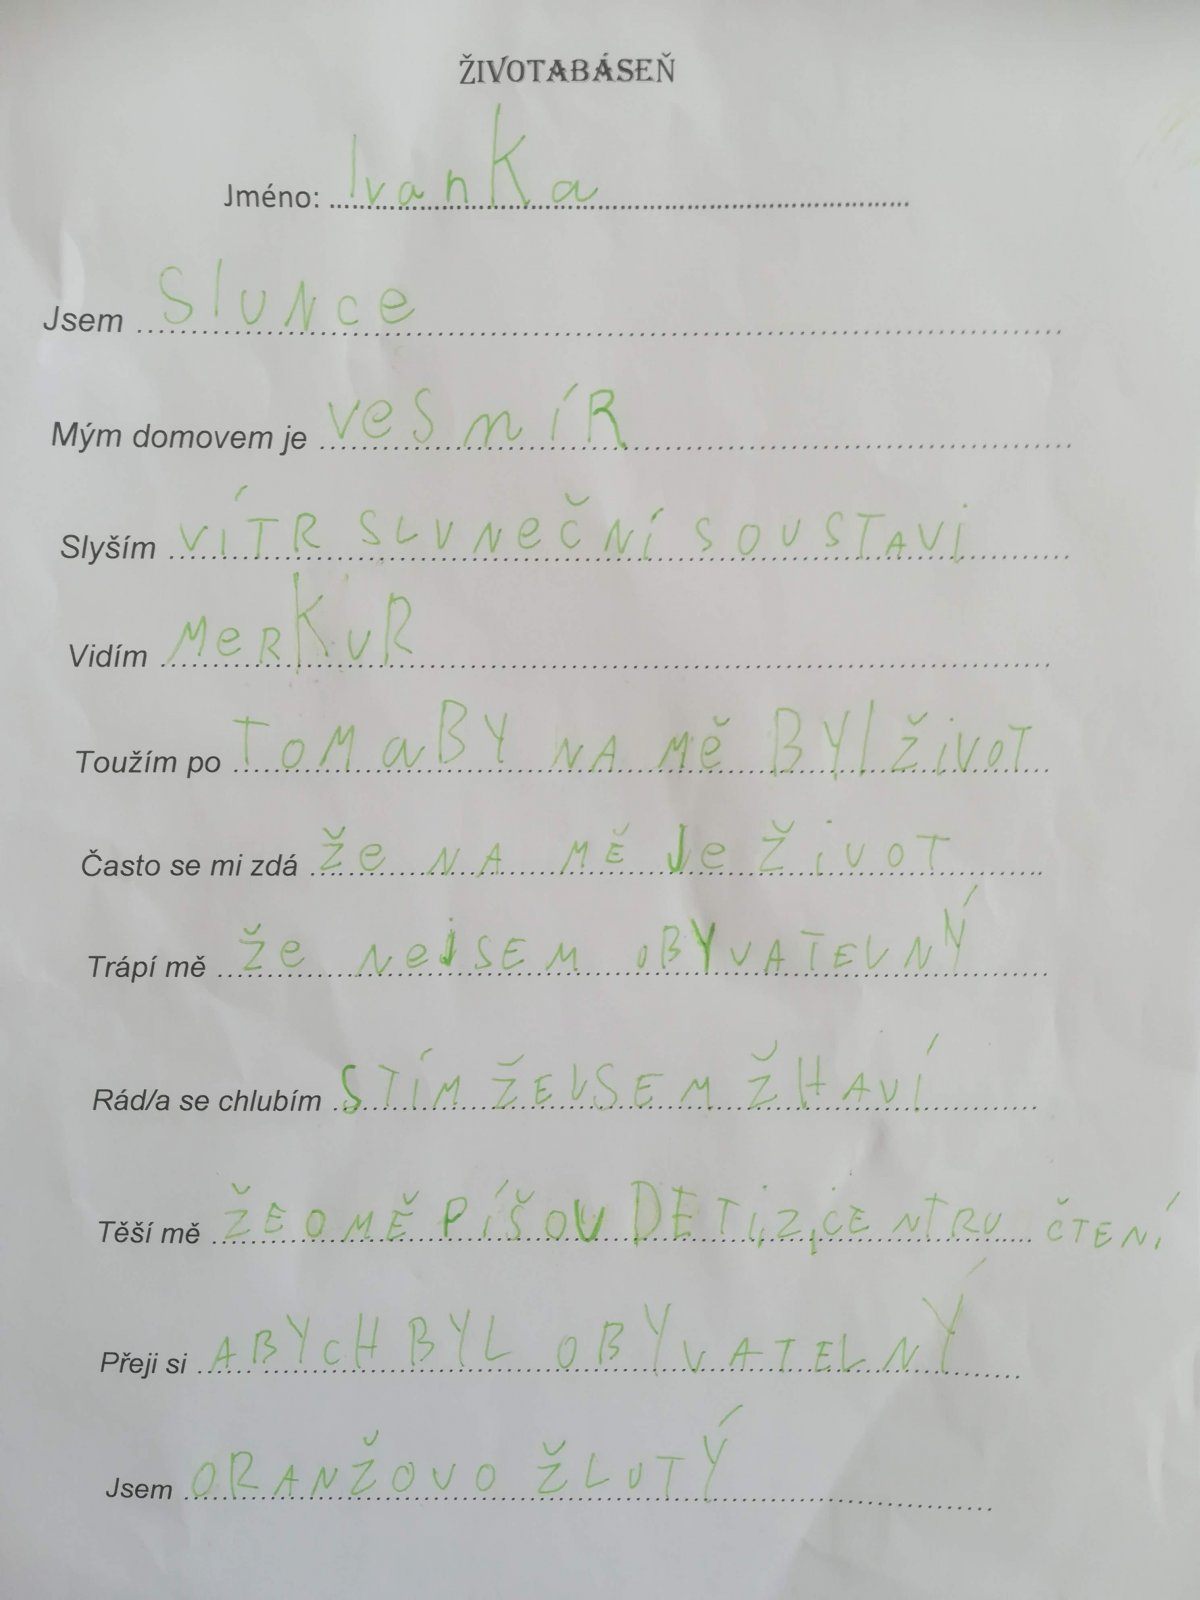 ŽIVOTABÁSEŇ
Jméno: IvanKa
Jsem SlUNce
Mým domovem je vesmíR
Slyším VíTR SLUNeČNí SOUSTAVi
Vidím MeRKuR
Toužím po ToMaBY NA Mě BYl ŽiVOT
Často se mi zdá že NA MĚ Je ŽivoT
Trápí mě že NeJSEM OBYVATELNÝ
Rád/a se chlubím STÍM ŽEJSEM ŽHAVÍ
Těší mě ŽEOMĚ PÍŠOU DETi,Z,CENTRU ČTENÍ
Přeji si ABYCH BYL OBYVATELNÝ
Jsem ORANŽOVO ŽLUTÝ